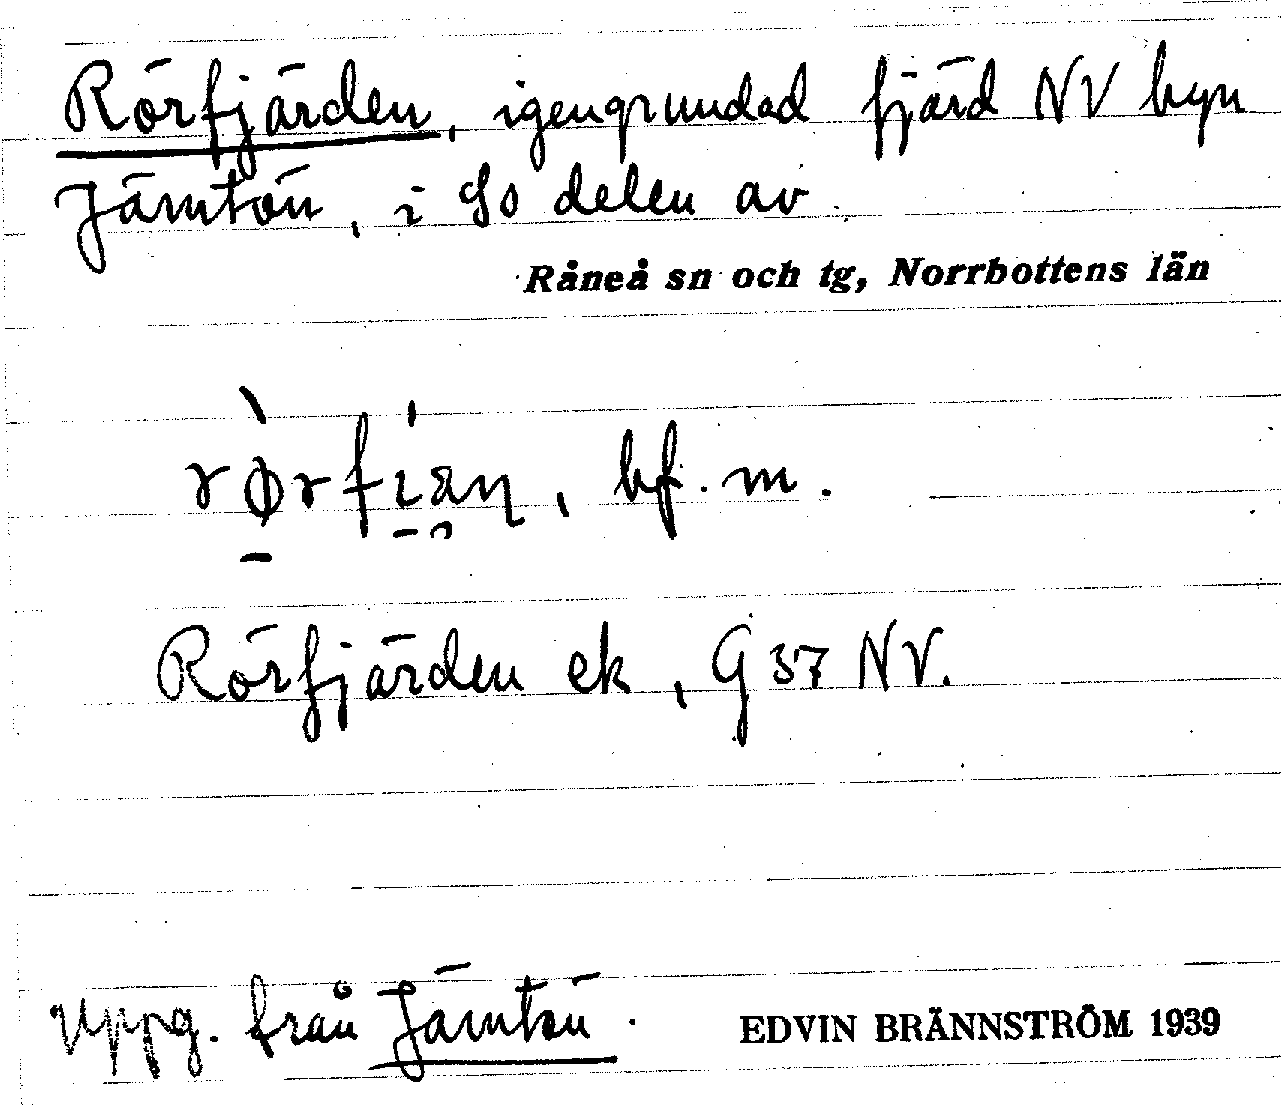 Rörfjärden, igengrundad fjärd NV byn
Jämtön, i So delen av
Råneå sn och tg, Norrbottens län
bf. m.
Rörfjärden ek, G 37 NV.
Uppg. från Jämtön. EDVIN BRÄNNSTRÖM 1939